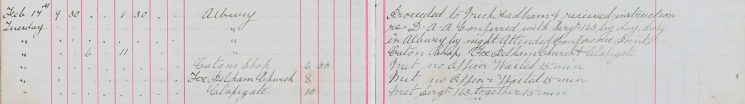 Feb 14th 9 30 . . 1 30 . . Albury Proceeded to Much Hadham & received instruction
Tuesday " re D. A. A Conferred with Sergt 163 by day, duty
" " in Albury by night. Attended Conference Points
" 6 11 " Eaton Shop, Fox, Pelham Church & Clapgate
" Eatons Shop 6 30 Met no Officer Waited 15 min
" Fox, Pelham Church 8 Met no Officer Waited 15 min
" Clapgate 10 Met Sergt 163 together 15 min